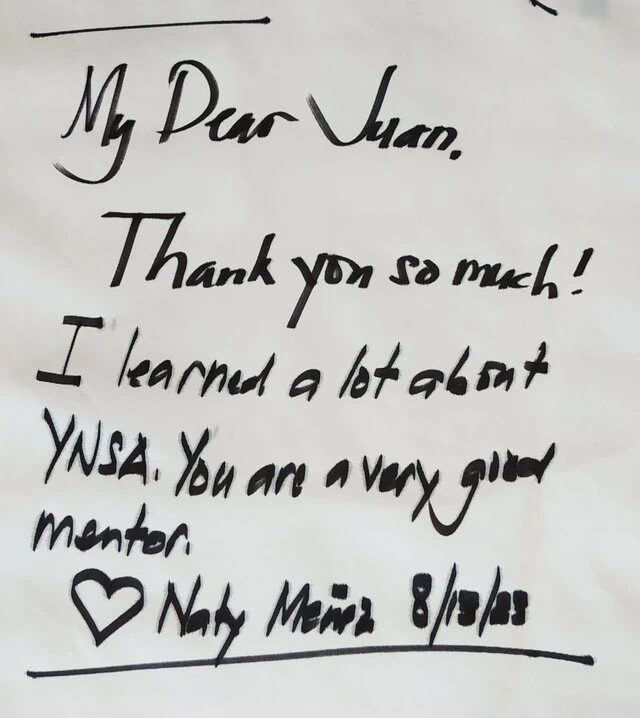 My Dear Juan.
Thank you so much!
I learned a lot about
YNSA. You are a very good
mentor.
♡ Naty 8/13/23